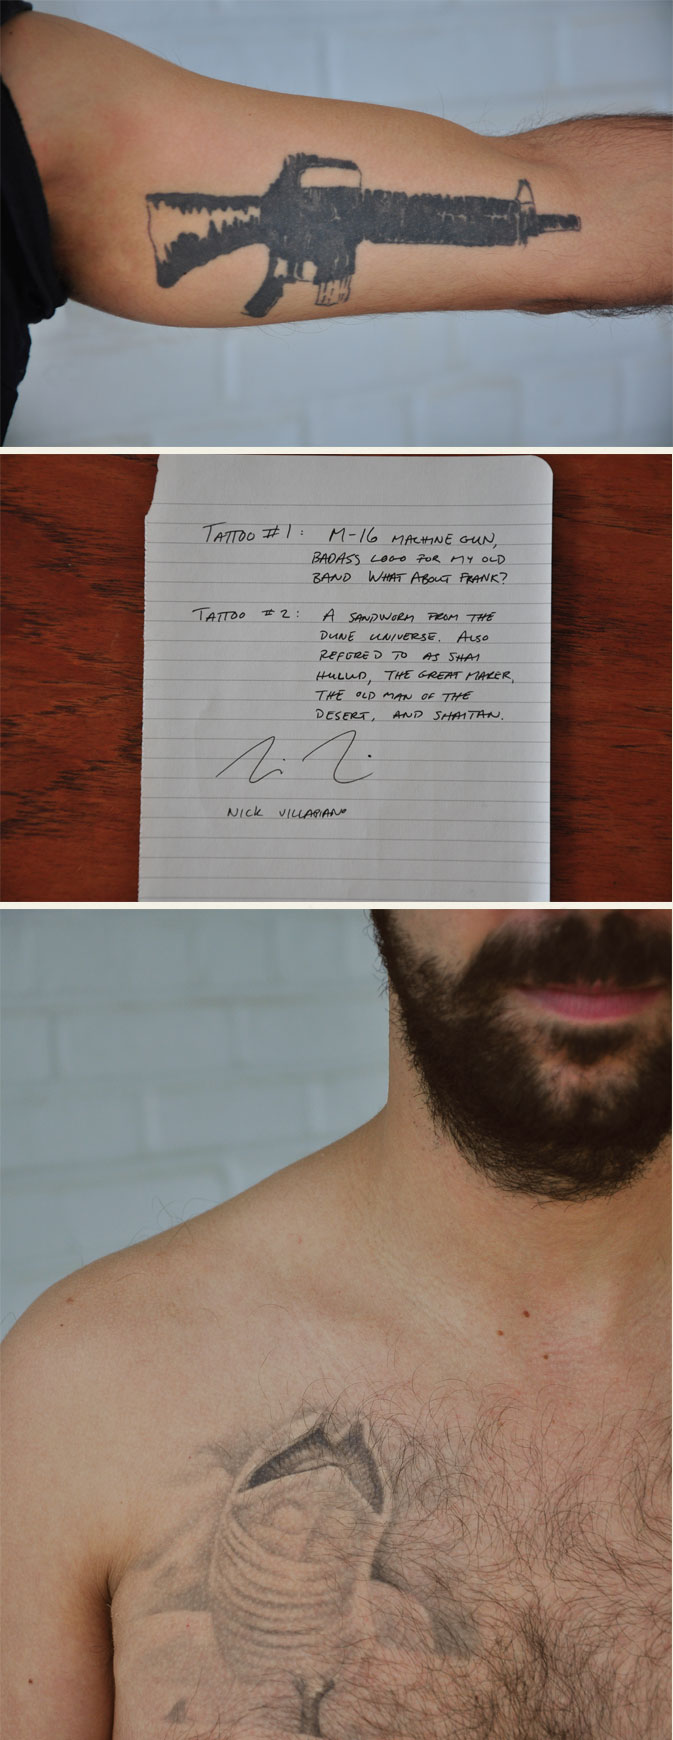 TATTOO #1: M-16 MACHINE GUN,
BADASS LOGO FOR MY OLD
BAND WHAT ABOUT FRANK?
TATTOO #2: A SANDWORM FROM THE
DUNE UNIVERSE. ALSO
REFERED TO AS SHAI
HULUD, THE GREAT MAKER,
THE OLD MAN OF THE
DESERT, AND SHAITAN.
NICK VILLAPIANO